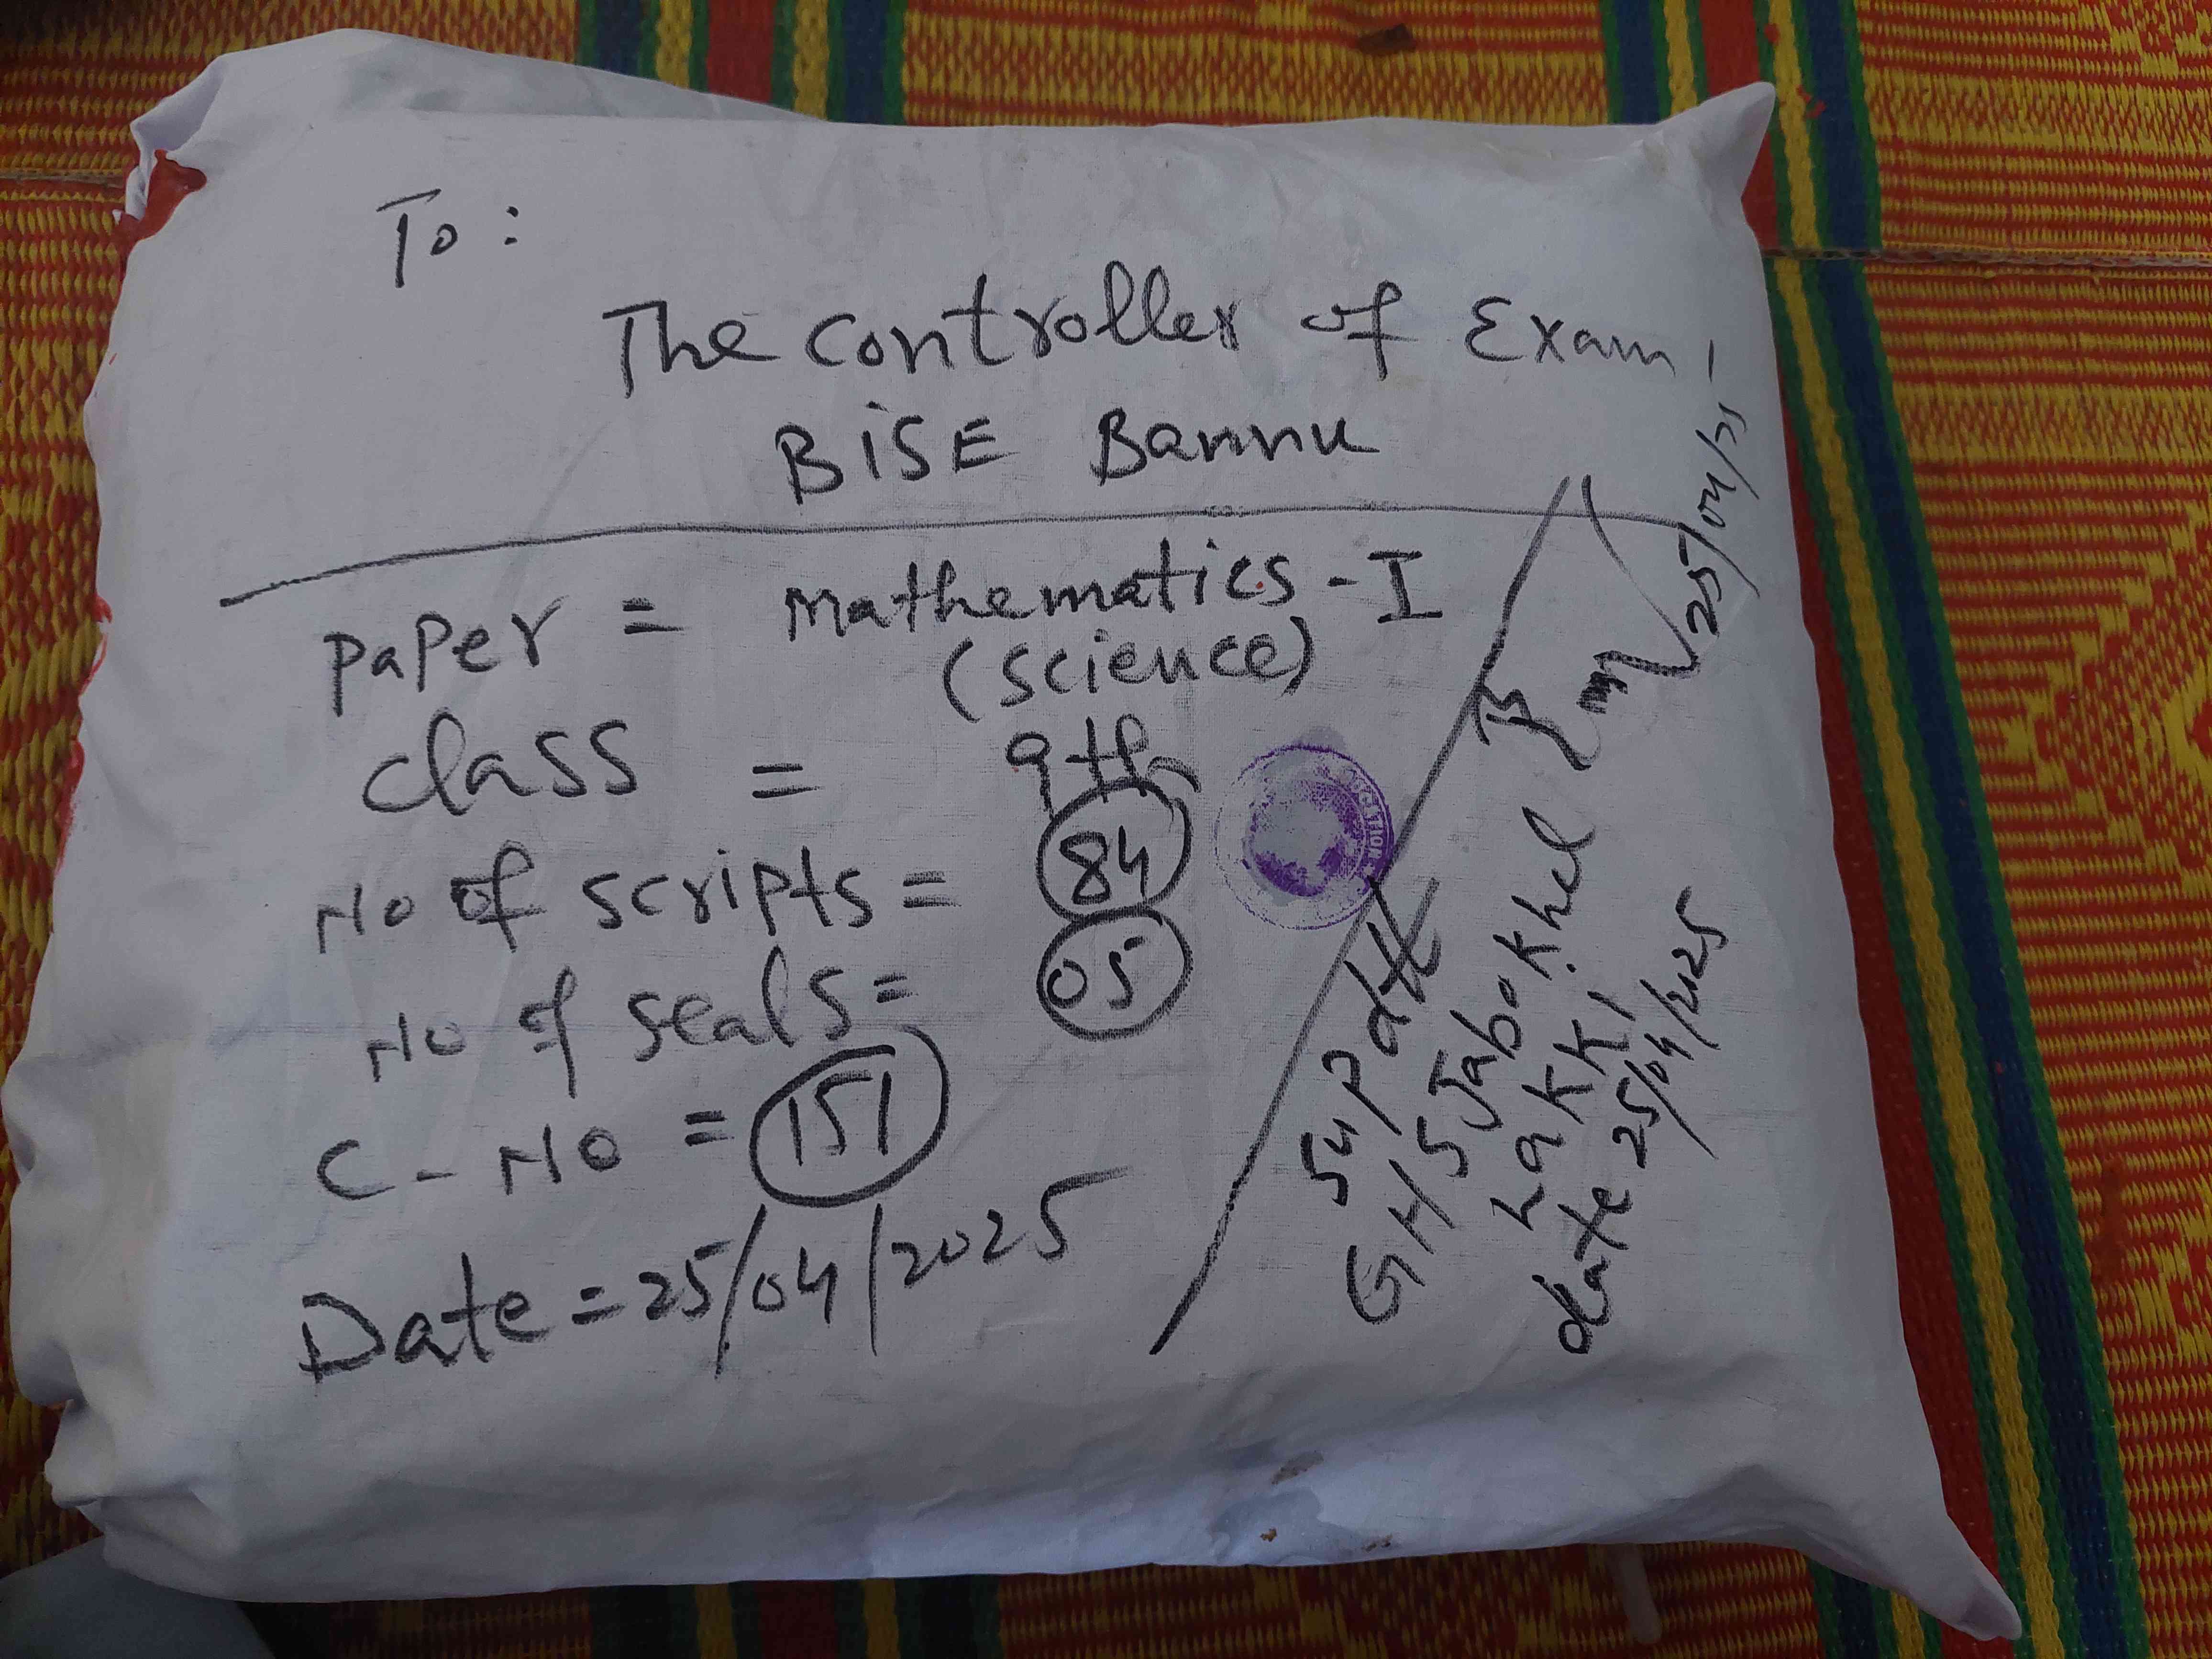 To:
The controller of Exam,
BiSE Bannu
Paper = Mathematics - I
(Science)
class = 9th
No of scripts = 84
No of seals = 05
C - No = 151
Date = 25/04/2025
25/04/25
Supdtt
GHS Jabo Khel
Lakki
date 25/04/2025